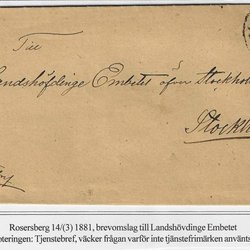 Till
Landshöfdinge Embetet öfver Stockhol
Stockh
Rosersberg 14/(3) 1881, brevomslag till Landshövdinge Embetet
oteringen: Tjenstebref, väcker frågan varför inte tjänstefrimärken använts